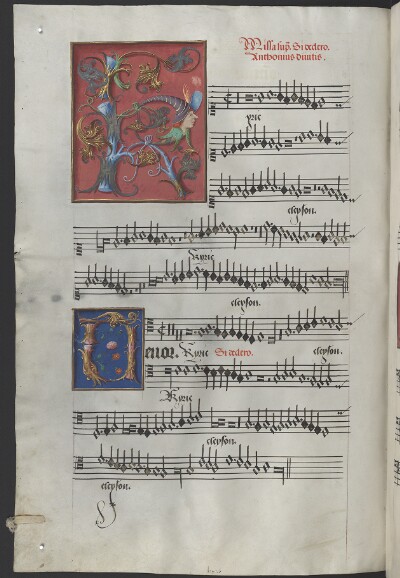 Missa sup. Si dedero.
Anthonius Divitis.
K
yrie
eleyson.
Kyrie
eleyson.
T
enor. Kyrie Si dedero. eleyson.
Kyrie
eleyson.
eleyson.